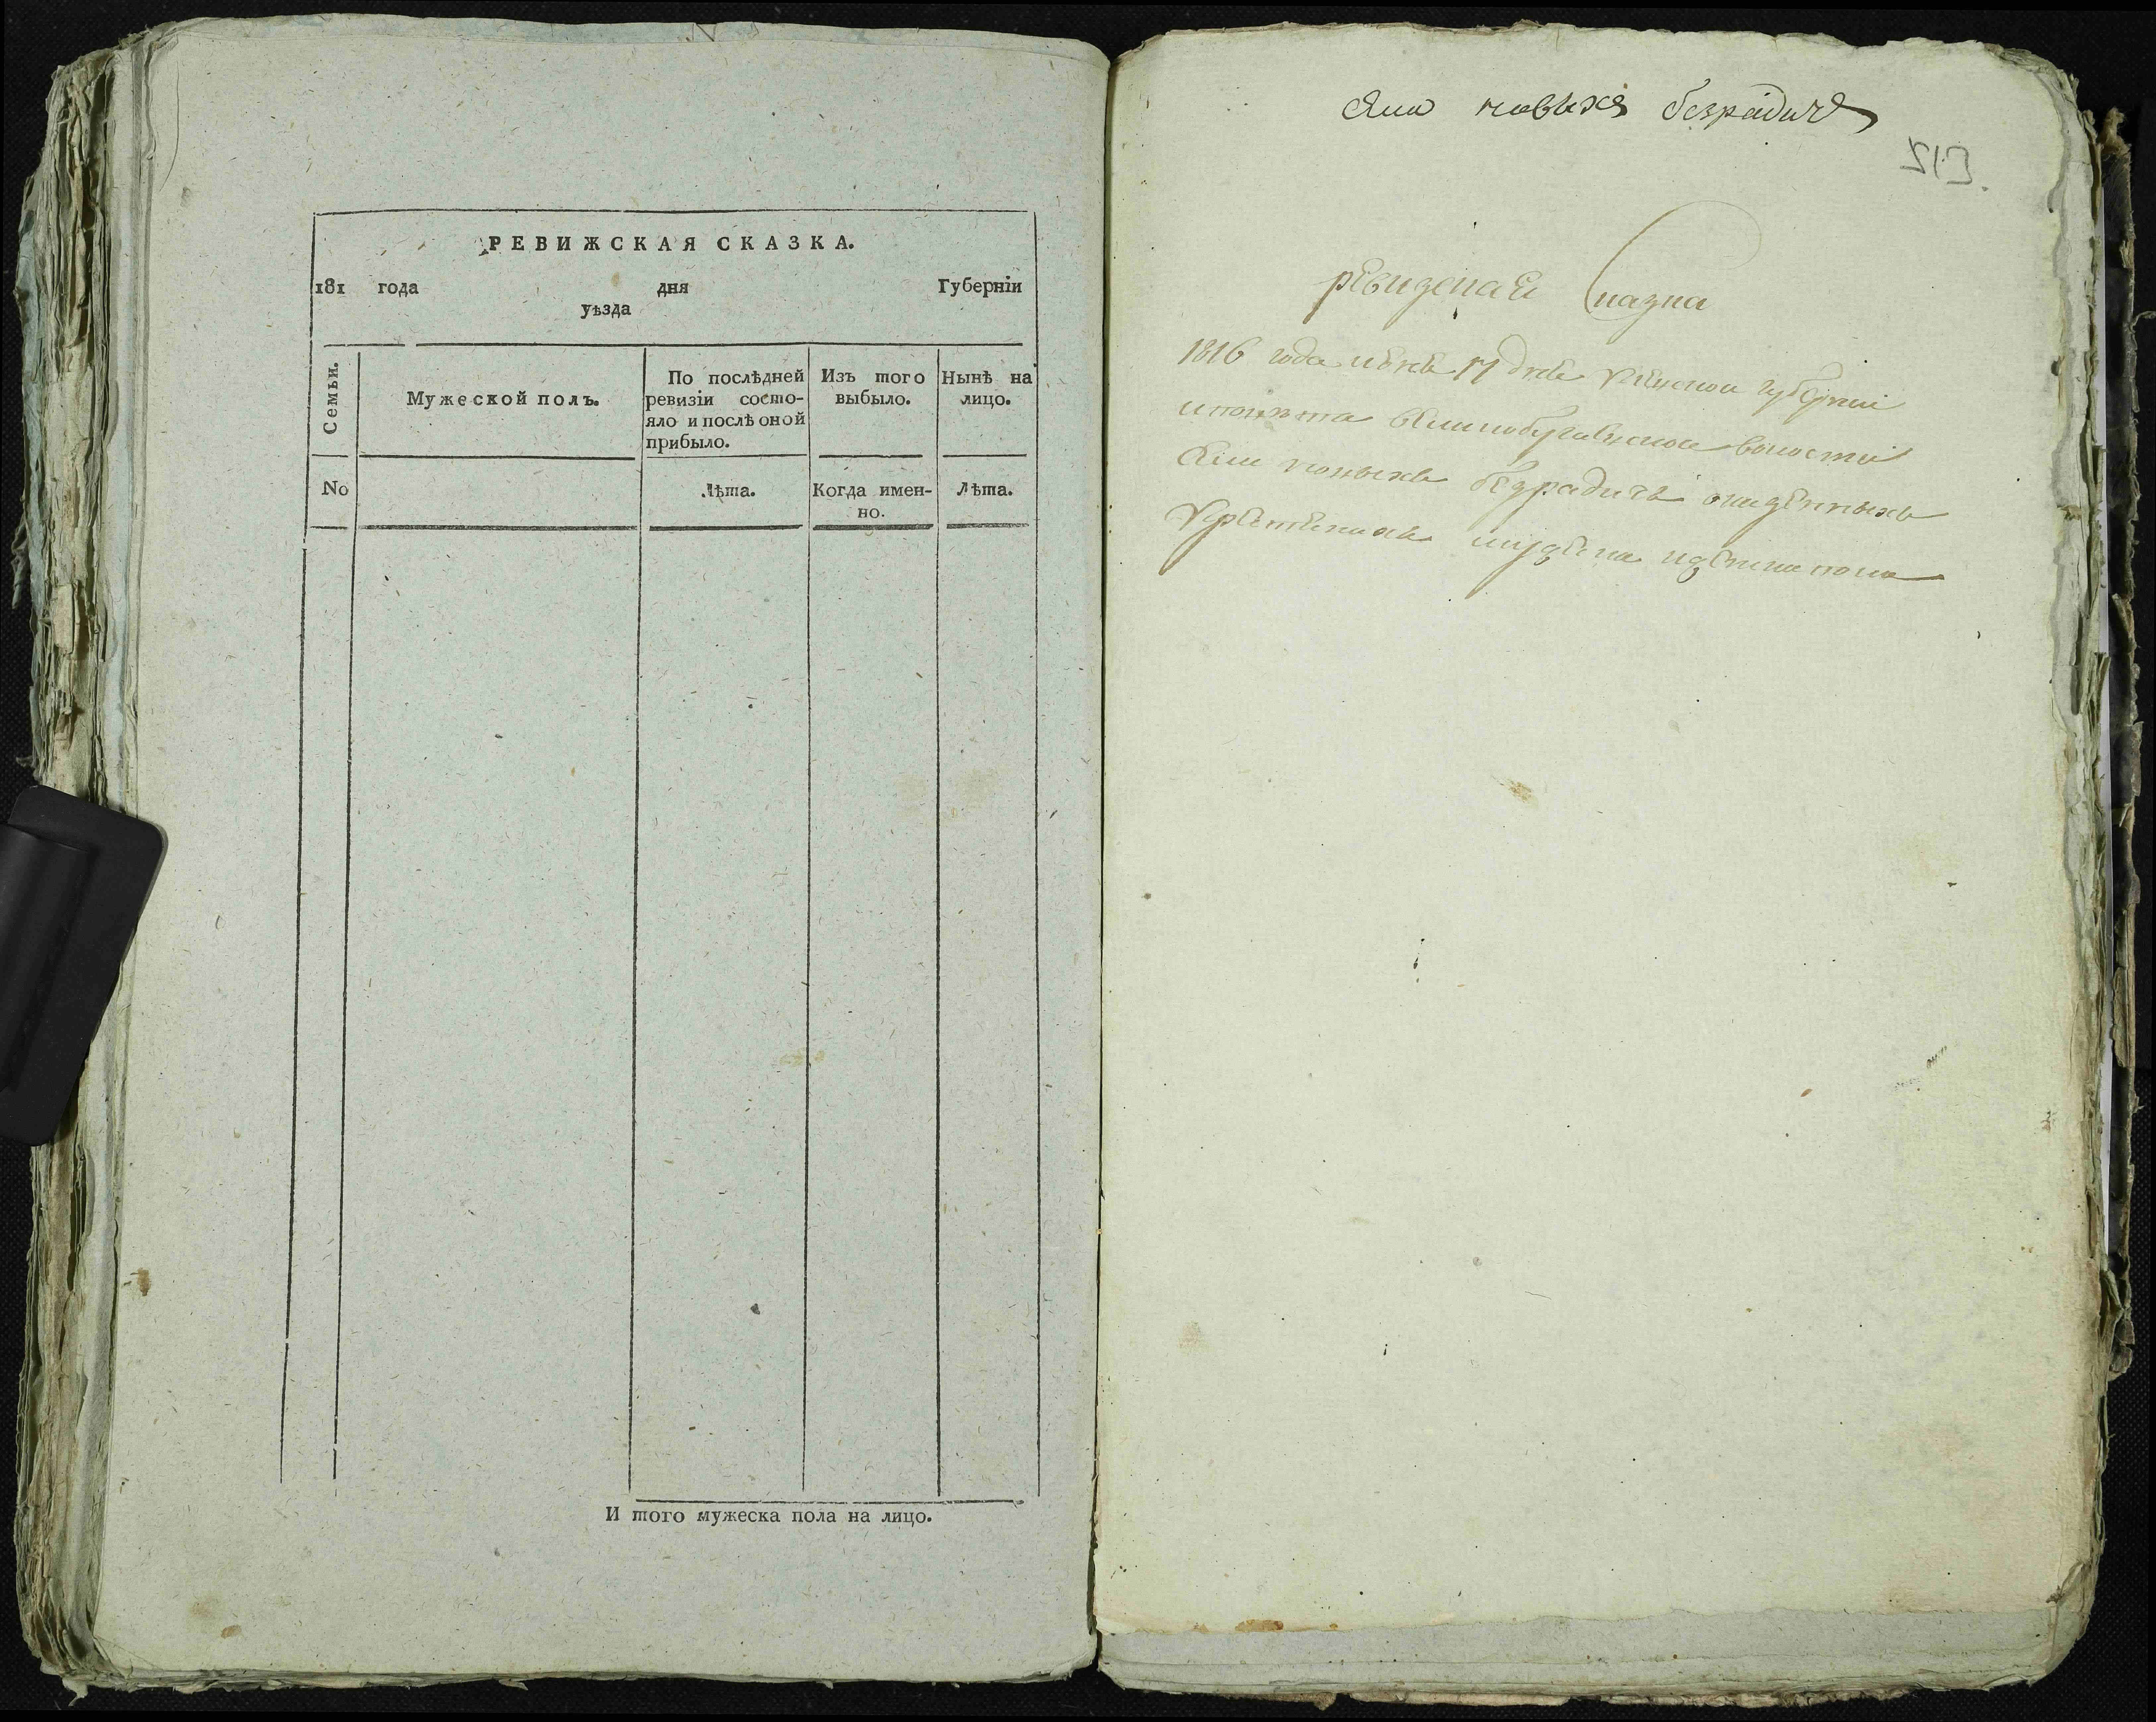 РЕВИЖСКАЯ СКАЗКА.
181 года дня Губерніи
уѣзда
Семьи.
Мужеской полъ.
По послѣдней
ревизіи состо-
яло и послѣ оной
прибыло.
Изъ того
выбыло.
Нынѣ на
лицо.
No
Лѣта.
Когда имен-
но.
Лѣта.
И того мужеска пола на лицо.
села новыхъ безрадичъ
513.
ревизская Сказка
1816 года июня 17 дня киевской губернии
и повѣта великобугаевской волости
села новыхъ безрадичъ о казенныхъ
крестянахъ мужеска и женска пола